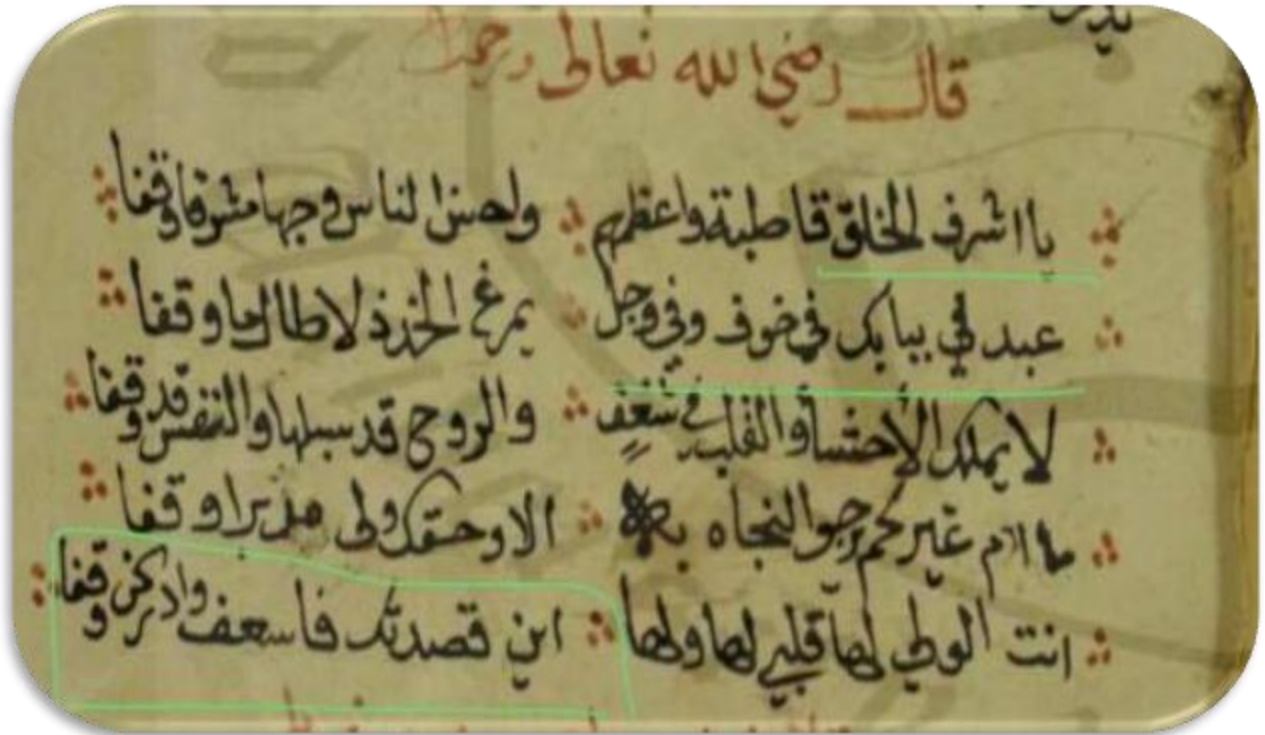 قال رضي الله تعالى
يا اشرف الخلق قاطبة واعظمهم ولحسن الناس وجها مشرقا وقفا
عبد لكم ببابك في خوف وفي وجل يمرغ الخد ذلا طال ما وقفا
لا يملك الاحشاء والقلب في شغف والروح قد سبلها والنفس قد وقفا
ما ام غيركم يرجوا النجاه به الا وحقك ولى مدبرا وقفا
انت الولي لها قلبي لها ولها اين قصدتك فاسعف وادركن وقفا